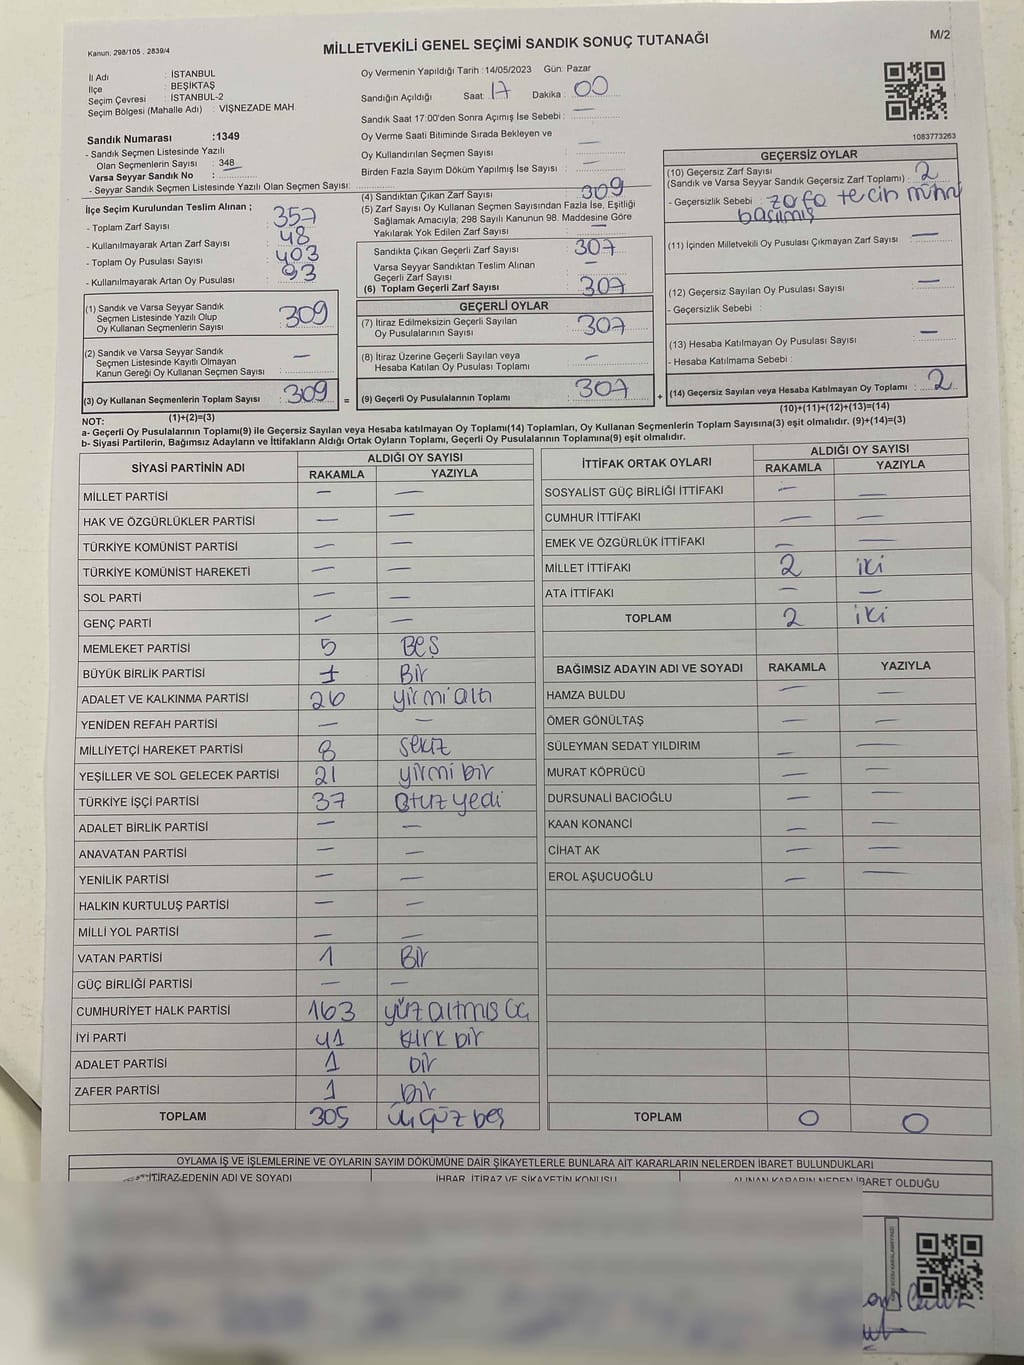 Kanun: 298/105 , 2839/4
MİLLETVEKİLİ GENEL SEÇİMİ SANDIK SONUÇ TUTANAĞI
M/2
İl Adı : İSTANBUL
İlçe : BEŞİKTAŞ
Seçim Çevresi : İSTANBUL-2
Seçim Bölgesi (Mahalle Adı) : VİŞNEZADE MAH.
Sandık Numarası :1349
- Sandık Seçmen Listesinde Yazılı
Olan Seçmenlerin Sayısı : 348
Varsa Seyyar Sandık No :
- Seyyar Sandık Seçmen Listesinde Yazılı Olan Seçmen Sayısı:
İlçe Seçim Kurulundan Teslim Alınan ;
- Toplam Zarf Sayısı : 357
- Kullanılmayarak Artan Zarf Sayısı : 48
- Toplam Oy Pusulası Sayısı : 403
- Kullanılmayarak Artan Oy Pusulası : 93
(1) Sandık ve Varsa Seyyar Sandık
Seçmen Listesinde Yazılı Olup
Oy Kullanan Seçmenlerin Sayısı : 309
(2) Sandık ve Varsa Seyyar Sandık
Seçmen Listesinde Kayıtlı Olmayan
Kanun Gereği Oy Kullanan Seçmen Sayısı : —
(3) Oy Kullanan Seçmenlerin Toplam Sayısı : 309 =
(1)+(2)=(3)
Oy Vermenin Yapıldığı Tarih : 14/05/2023 Gün: Pazar
Sandığın Açıldığı Saat: 17 Dakika : 00
Sandık Saat 17:00'den Sonra Açımış İse Sebebi : —
Oy Verme Saati Bitiminde Sırada Bekleyen ve
Oy Kullandırılan Seçmen Sayısı : —
Birden Fazla Sayım Döküm Yapılmış İse Sayısı : —
(4) Sandıktan Çıkan Zarf Sayısı : 309
(5) Zarf Sayısı Oy Kullanan Seçmen Sayısından Fazla İse, Eşitliği
Sağlamak Amacıyla; 298 Sayılı Kanunun 98. Maddesine Göre
Yakılarak Yok Edilen Zarf Sayısı : —
Sandıkta Çıkan Geçerli Zarf Sayısı : 307
Varsa Seyyar Sandıktan Teslim Alınan
Geçerli Zarf Sayısı : —
(6) Toplam Geçerli Zarf Sayısı : 307
GEÇERLİ OYLAR
(7) İtiraz Edilmeksizin Geçerli Sayılan
Oy Pusulalarının Sayısı : 307
(8) İtiraz Üzerine Geçerli Sayılan veya
Hesaba Katılan Oy Pusulası Toplamı : —
(9) Geçerli Oy Pusulalarının Toplamı : 307 +
1083773263
GEÇERSİZ OYLAR
(10) Geçersiz Zarf Sayısı
(Sandık ve Varsa Seyyar Sandık Geçersiz Zarf Toplamı) : 2
- Geçersizlik Sebebi : zarfa tecih mührü
basılmış
(11) İçinden Milletvekili Oy Pusulası Çıkmayan Zarf Sayısı : —
(12) Geçersiz Sayılan Oy Pusulası Sayısı : —
- Geçersizlik Sebebi :
(13) Hesaba Katılmayan Oy Pusulası Sayısı : —
- Hesaba Katılmama Sebebi :
(14) Geçersiz Sayılan veya Hesaba Katılmayan Oy Toplamı : 2
(10)+(11)+(12)+(13)=(14)
NOT:
a- Geçerli Oy Pusulalarının Toplamı(9) ile Geçersiz veya Hesaba katılmayan Oy Toplamı(14) Toplamları, Oy Kullanan Seçmenlerin Toplam Sayısına(3) eşit olmalıdır. (9)+(14)=(3)
b- Siyasi Partilerin, Bağımsız Adayların ve İttifakların Aldığı Ortak Oyların Toplamı, Geçerli Oy Pusulalarının Toplamına(9) eşit olmalıdır.
SİYASİ PARTİNİN ADI ALDIĞI OY SAYISI
RAKAMLA YAZIYLA
MİLLET PARTİSİ — —
HAK VE ÖZGÜRLÜKLER PARTİSİ — —
TÜRKİYE KOMÜNİST PARTİSİ — —
TÜRKİYE KOMÜNİST HAREKETİ — —
SOL PARTİ — —
GENÇ PARTİ — —
MEMLEKET PARTİSİ 5 BEŞ
BÜYÜK BİRLİK PARTİSİ 1 Bir
ADALET VE KALKINMA PARTİSİ 26 yirmi altı
YENİDEN REFAH PARTİSİ — —
MİLLİYETÇİ HAREKET PARTİSİ 8 sekiz
YEŞİLLER VE SOL GELECEK PARTİSİ 21 yirmi bir
TÜRKİYE İŞÇİ PARTİSİ 37 Otuz yedi
ADALET BİRLİK PARTİSİ — —
ANAVATAN PARTİSİ — —
YENİLİK PARTİSİ — —
HALKIN KURTULUŞ PARTİSİ — —
MİLLİ YOL PARTİSİ — —
VATAN PARTİSİ 1 Bir
GÜÇ BİRLİĞİ PARTİSİ — —
CUMHURİYET HALK PARTİSİ 163 yüz altmış üç
İYİ PARTİ 41 kırk bir
ADALET PARTİSİ 1 bir
ZAFER PARTİSİ 1 bir
TOPLAM 305 üç yüz beş
İTTİFAK ORTAK OYLARI ALDIĞI OY SAYISI
RAKAMLA YAZIYLA
SOSYALİST GÜÇ BİRLİĞİ İTTİFAKI — —
CUMHUR İTTİFAKI — —
EMEK VE ÖZGÜRLÜK İTTİFAKI — —
MİLLET İTTİFAKI 2 iki
ATA İTTİFAKI — —
TOPLAM 2 iki
BAĞIMSIZ ADAYIN ADI VE SOYADI RAKAMLA YAZIYLA
HAMZA BULDU — —
ÖMER GÖNÜLTAŞ — —
SÜLEYMAN SEDAT YILDIRIM — —
MURAT KÖPRÜCÜ — —
DURSUNALİ BACIOĞLU — —
KAAN KONANCİ — —
CİHAT AK — —
EROL AŞUCUOĞLU — —
TOPLAM 0 0
OYLAMA İŞ VE İŞLEMLERİNE VE OYLARIN SAYIM DÖKÜMÜNE DAİR ŞİKAYETLERLE BUNLARA AİT KARARLARIN NELERDEN İBARET BULUNDUKLARI
İTİRAZ EDENİN ADI VE SOYADI İHBAR, İTİRAZ VE ŞİKAYETİN KONUSU ALINAN KARARIN NEDEN İBARET OLDUĞU